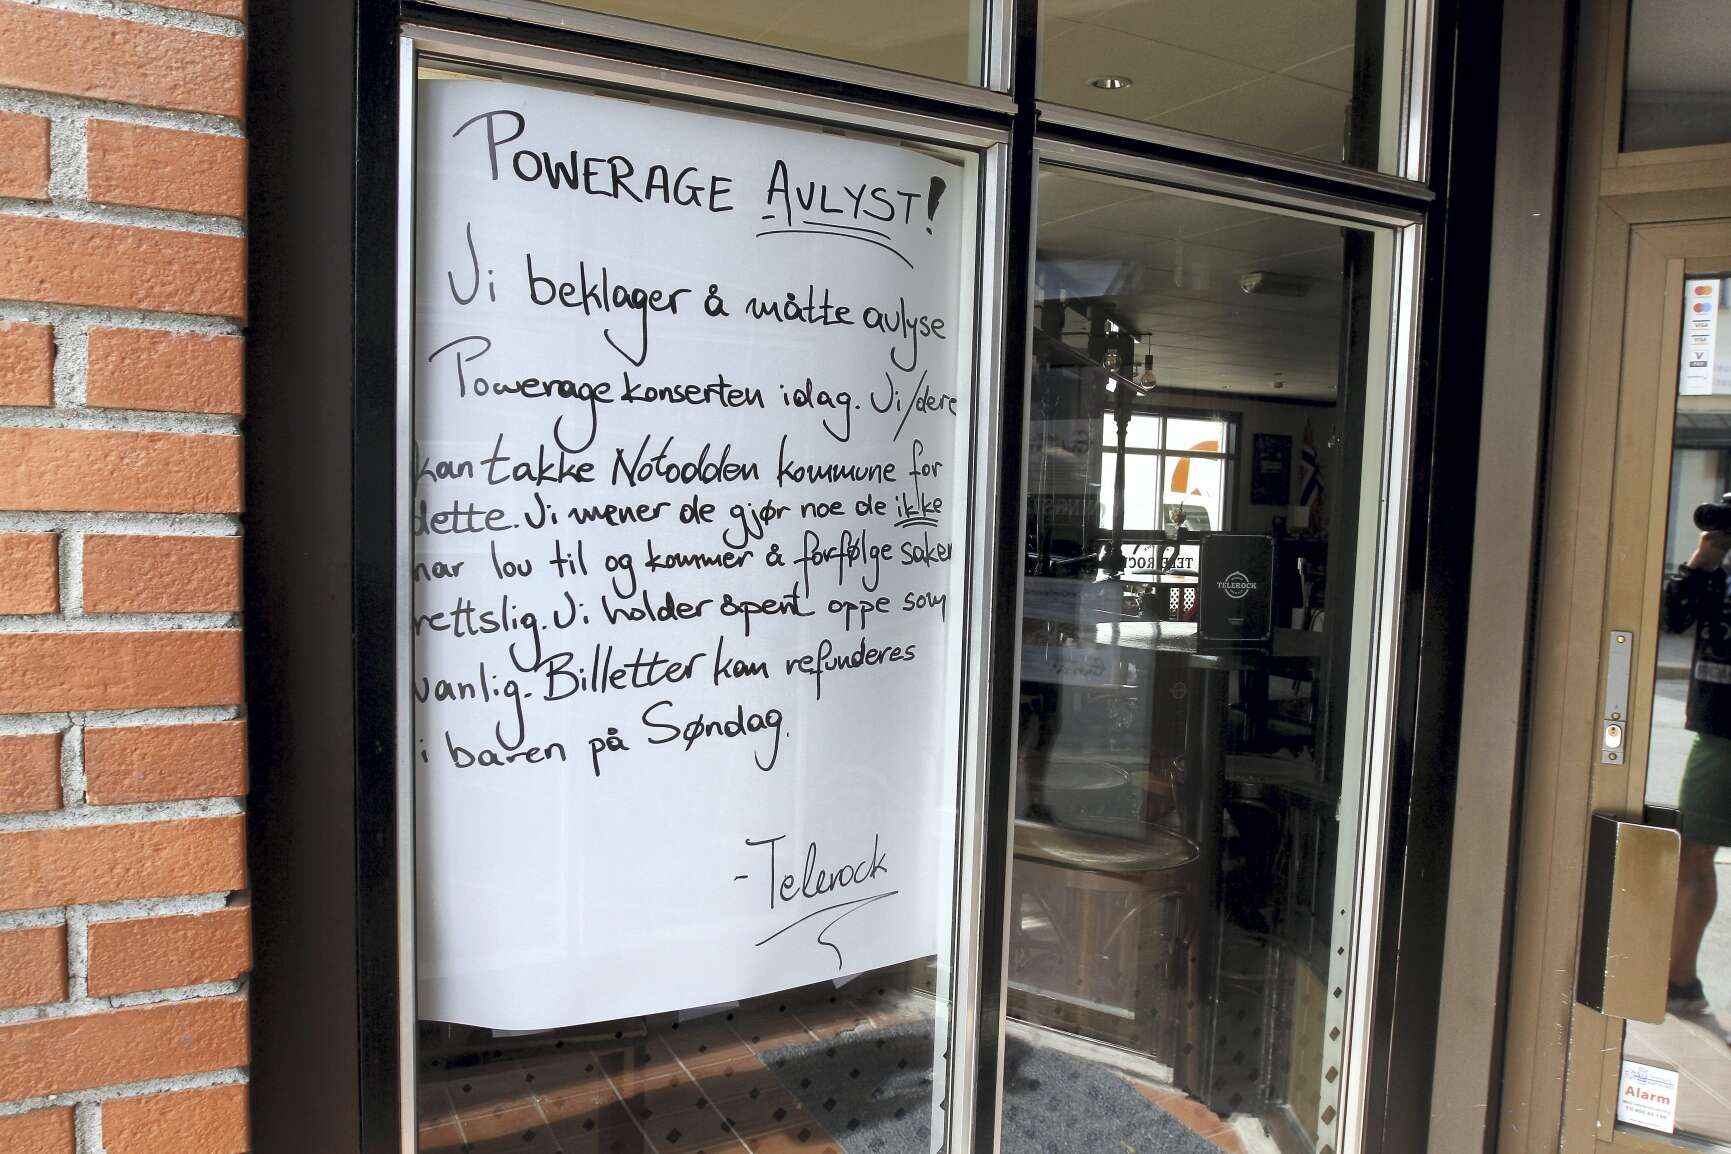 POWERAGE AVLYST!
Vi beklager å måtte avlyse
Powerage konserten idag. Vi/dere
kan takke Notodden kommune for
dette. Vi mener de gjør noe de ikke
har lov til og kommer å forfølge saken
rettslig. Vi holder åpent oppe som
vanlig. Billetter kan refunderes
i baren på Søndag.
-Telerock
TELEROCK
TELEROCK
VISA
Alarm